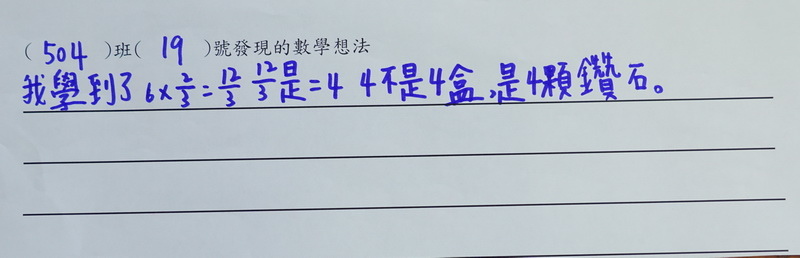 ( 504 )班( 19 )號發現的數學想法
我學到了 6×2/3=12/3 12/3是=4 4不是4盒,是4顆鑽石。